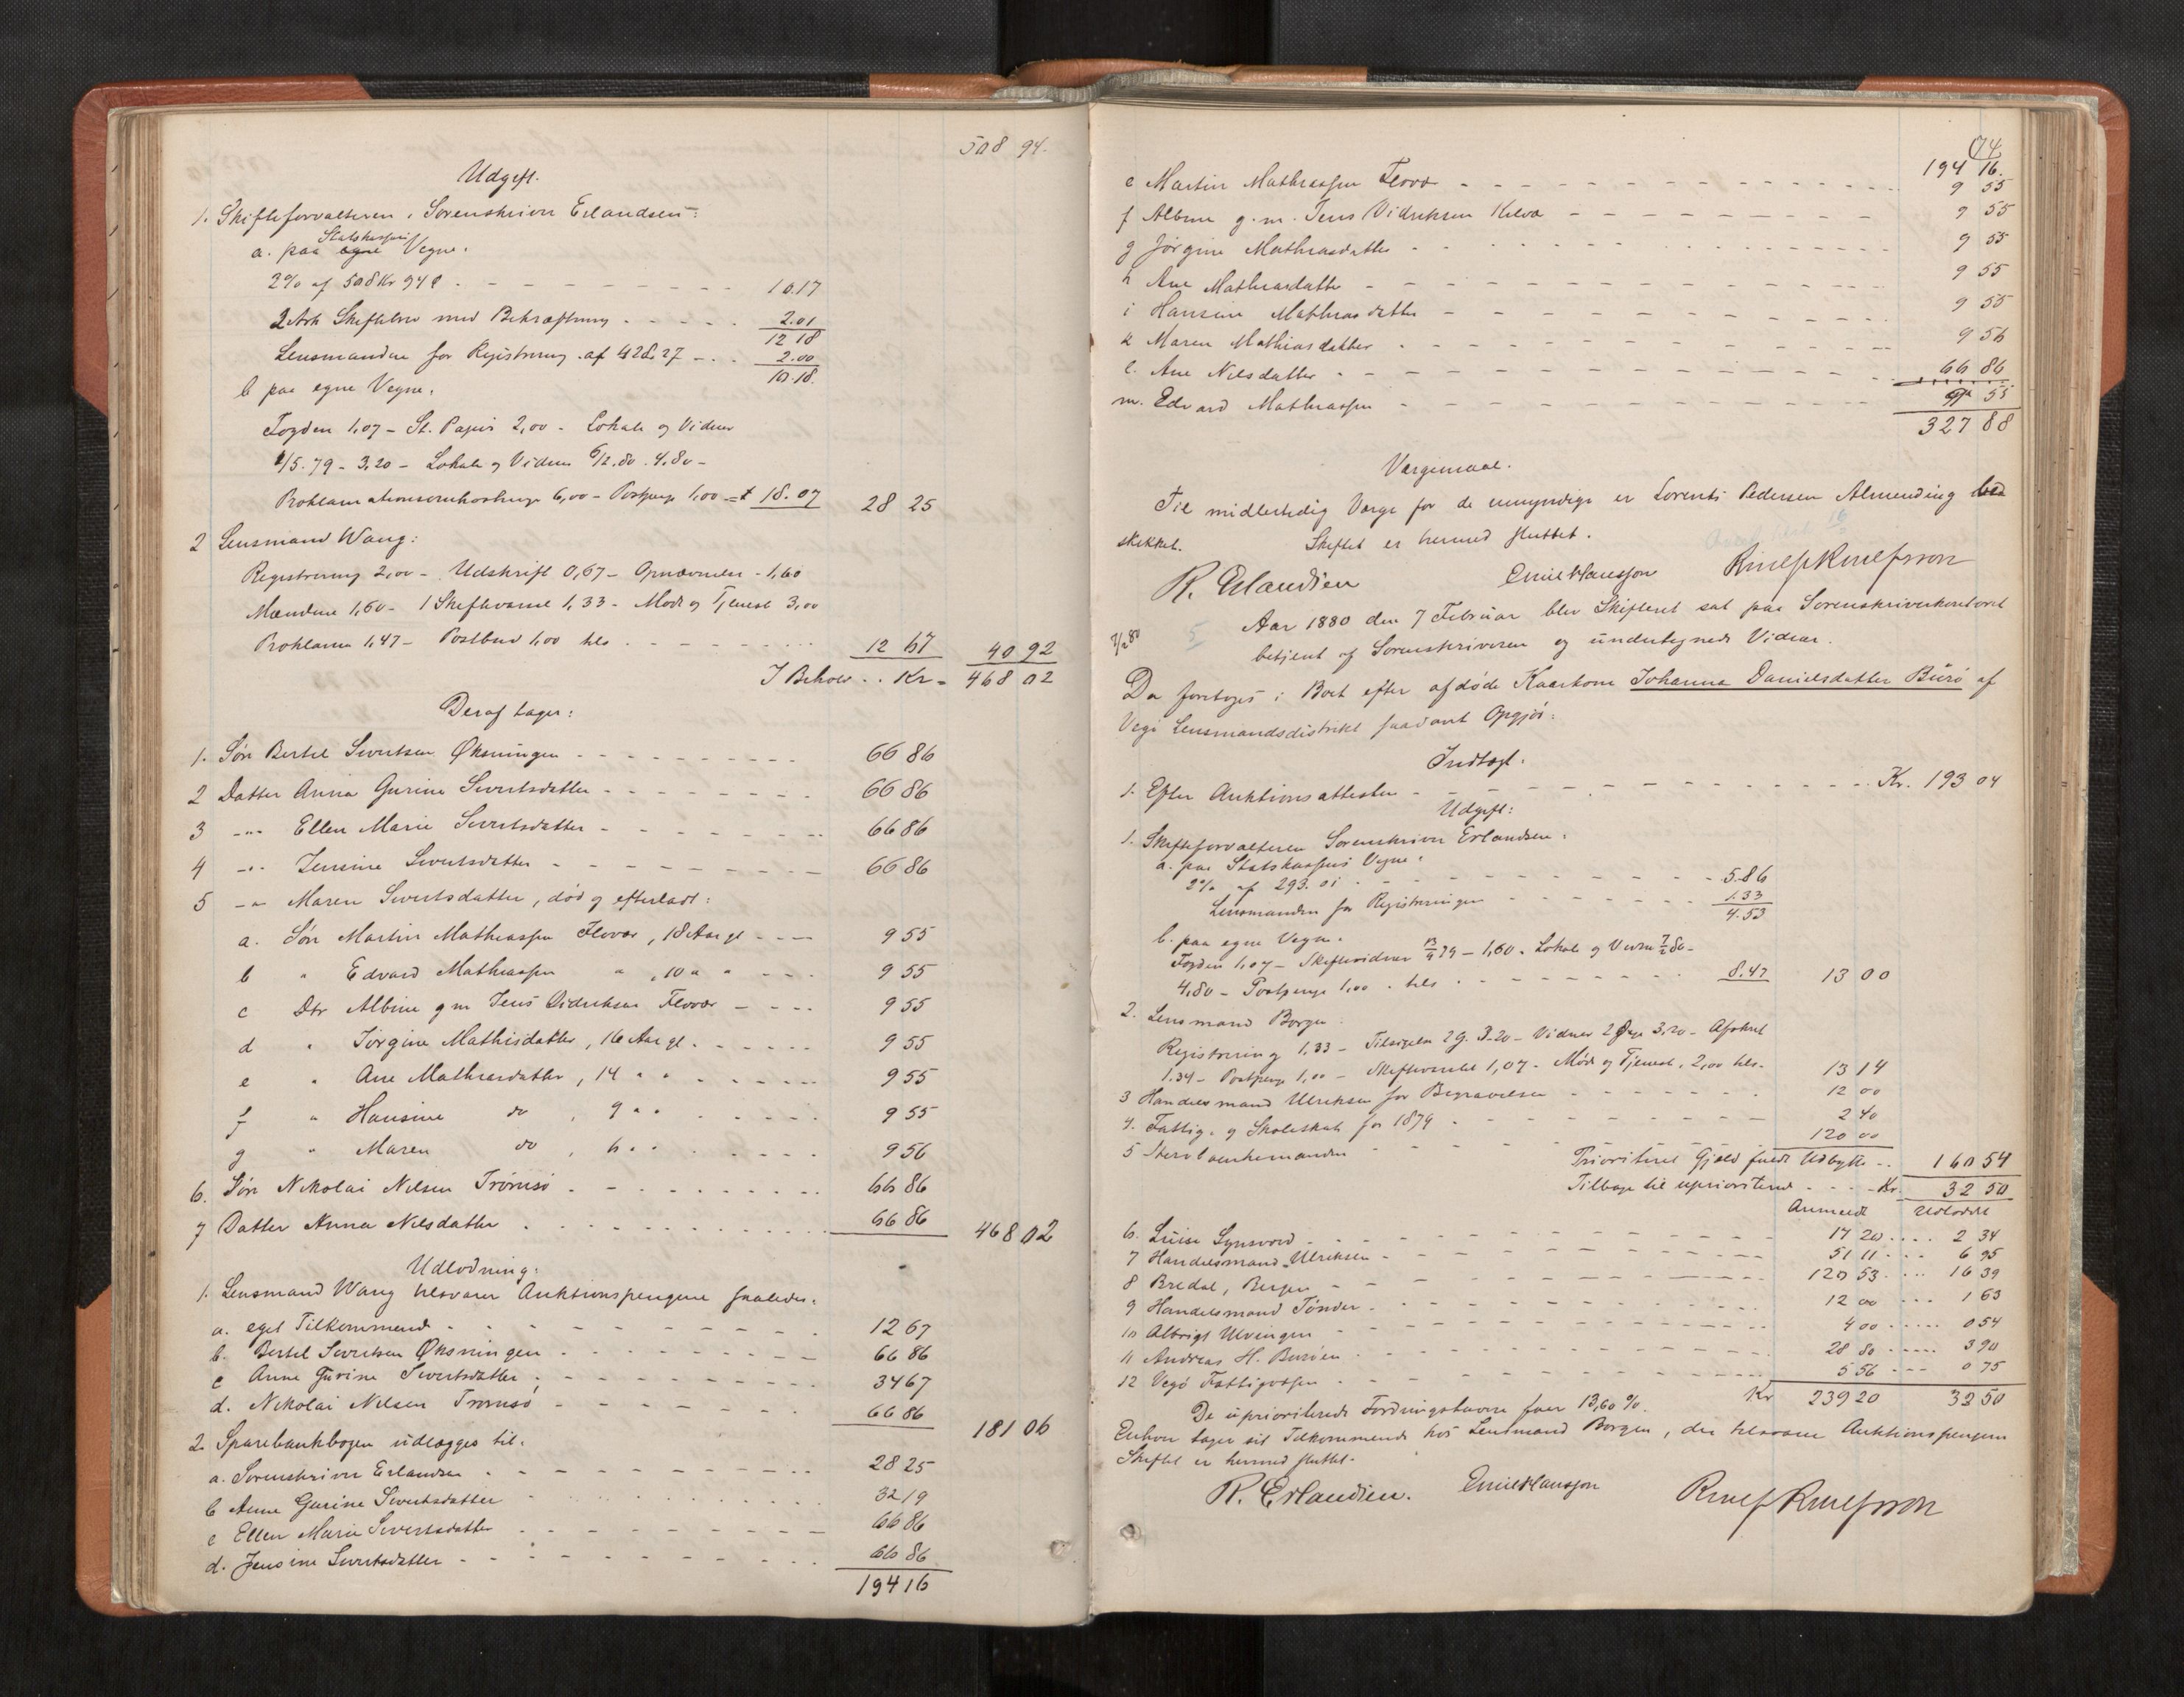 508 94.
Udgift.
1. Skifteforvalteren, Sorenskriver Erlandsen:
a. paa Statskassens Vegne.
2% af 508 Kr 94 - - - 10.17
2 Ark Skiftebrev med Bekræftning - - - 2.01
12 18
Lensmanden for Registrering af - - 2.00
10.18.
b paa egne Vegne.
Fogden 1,07 - St. Papir 2,00 - Lokale og Vidner
/5.79 - 3,20 - Lokale og Vidner 6/12.80 . 4.80 -
Proklamationsomkostninge 6,00 - Postpenge 1,00 = 18.07 28 25
2 Lensmand Wang:
Registrering 2,00 - Udskrift 0,67 - Opnævnelse - 1,60
Mændene 1,60 - 1 Skiftevarsel 1,33 - Møde og Tjeneste 3,00
Proklama 1,47 - Postbud 1,00 tils - - - 12 67 40 92
I Behold . . Kr = 468 02
Deraf tager:
1. Søn Bertel Sivertsen Øksningen - - - 66 86
2 Datter Anna Gurine Sivertsdatter - - - 66 86
3 -"- Ellen Marie Sivertsdatter - - - 66 86
4 -"- Jensine Sivertsdatter - - - 66 86
5 -"- Maren Sivertsdatter, død og efterladt:
a. Søn Martin Mathiassen Flovær, 18 Aar gl - - - 9 55
b " Edvard Mathiassen " , 10 " " - - - 9 55
c Dtr Albine g m Jens Didriksen Flovær - - - 9 55
d " Jørgine Mathisdatter, 16 Aar gl. - - - 9 55
e " Ane Mathiasdatter, 14 " " - - - 9 55
f " Hansine do , 9 " " - - - 9 55
g " Maren do , 6 " " - - - 9 56
6. Søn Nikolai Nilsen Tromsø - - - 66 86
7 Datter Anna Nilsdatter - - - 66 86 468 02
Udlodning:
1. Lensmand Wang tilsvarer Auktionspengene saaledes:
a. eget Tilkommende - - - 12 67
b. Bertel Sivertsen Øksningen - - - 66 86
c Anne Gurine Sivertsdatter - - - 34 67
d. Nikolai Nilsen Tromsø - - - 66 86 181 06
2. Sparebankbogen udlægges til:
a. Sorenskriver Erlandsen - - - 28 25
b Anne Gurine Sivertsdatter - - - 32 19
c Ellen Marie Sivertsdatter - - - 66 86
d. Jensine Sivertsdatter - - - 66 86
194 16
74
194 16.
e Martin Mathiassen Flovær - - - 9 55
f Albine g. m. Jens Didriksen Kilvær - - - 9 55
g Jørgine Mathiasdatter - - - 9 55
h Ane Mathiasdatter - - - 9 55
i Hansine Mathiasdatter - - - 9 55
k Maren Mathiasdatter - - - 9 56
l. Ane Nilsdatter - - - 66 86
m. Edvard Mathiassen - - - 9 55
327 88
Værgemaal.
Til midlertidig Værge for de umyndige er Lorents Pedersen Almending be
skikket. Skiftet er hermed sluttet.
R. Erlandsen Emil Hansson Rmelf Rmelfsson
7/2 80 5 Aar 1880 den 7 Februar blev Skifteret sat paa Sorenskriverkontoret
betjent af Sorenskriveren og undertegnede Vidner.
Da foretoges i Boet efter afdøde Kaarkone Johanna Danielsdatter Burø af
Vegø Lensmandsdistrikt saadant Opgjør:
Indtægt.
1. Efter Auktionsattesten - - - Kr. 193 04
Udgift:
1. Skifteforvalteren Sorenskriver Erlandsen:
a. paa Statskassens Vegne:
2% af 293.01 - - - 5.86
Lensmanden for Registreringen - - - 1.33
4.53
b. paa egne Vegne.
Fogden 1,07 - Skiftevidner 13/9 79 - 1,60 - Lokale og Vidner 7/2 80 -
4,80 - Postpenge 1,00 . tils - - - 8.47 13 00
2. Lensmand Borgen:
Registrering 1,33 - Tilsigelse 2 G. 3.20 - Vidner 2 Dage 3.20 - Afskrift
1.34 - Postpenge 1,00 - Skiftevarsel 1,07 - Møde og Tjeneste, 2,00 tils - 13 14
3 Handelsmand Ulriksen for Begravelsen - - - 12 00
4. Fattig- og Skoleskat for 1879 - - - 2 40
5 Stervboenkemanden - - - 120 00
Prioriteret Gjæld fuldt Udbytte - - 160 54
Tilbage til uprioriterede - - - Kr. 32 50
Anmeldt Udloddet
6. Luise Lynsvord - - - 17 20 . . . . 2 34
7 Handelsmand Ulriksen - - - 51 11 . . . 6 95
8 Bredal, Bergen - - - 120 53 . . . 16 39
9 Handelsmand Tønder - - - 12 00 . . . 1 63
10 Albrigt Ulvingen - - - 4 00 . . . . 0 54
11 Andreas H. Burøen - - - 28 80 . . . . 3 90
12 Vegø Fattigvæsen - - - 5 56 - - - 0 75
De uprioriterede Fordringshavere faar 13,60 %. Kr 239 20 32 50
Enhver tager sit Tilkommende hos Lensmand Borgen, der tilsvarer Auktionspengene
Skiftet er hermed sluttet.
R. Erlandsen. Emil Hansson Rmelf Rmelfsson